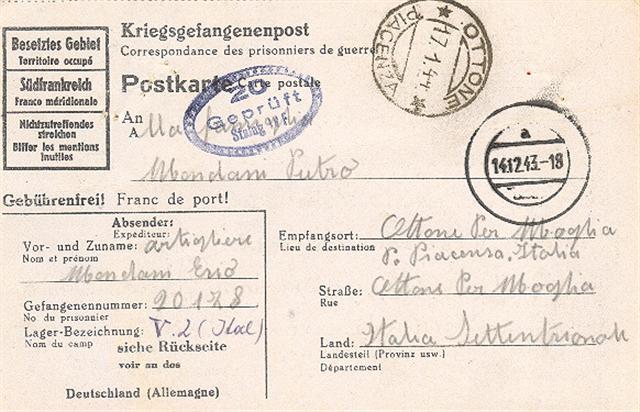 Besetztes Gebiet
Territoire occupé
Südfrankreich
Franco méridionale
Nichtzutreffendes
streichen
Biffer les mentions
inutiles
Kriegsgefangenenpost
Correspondance des prisonniers de guerre
Postkarte Carte postale
An
A
20
Geprüft
Stalag
OTTONE
PIACENZA
17.1.44
a
14.12.43.-18
Mondani Pietro
Gebührenfrei! Franc de port!
Absender:
Expediteur:
Vor- und Zuname: artigliere
Nom et prénom
Mondani
Gefangenennummer: 90178
No du prisonnier
Lager-Bezeichnung: V. 2 (Ital)
Nom du camp
siehe Rückseite
voir au dos
Deutschland (Allemagne)
Empfangsort: Ottone Per Moglia
Lieu de destination P. Piacensa, Italia
Straße: Ottone Per Moglia
Rue
Land: Italia Settentrionale
Landesteil (Provinz usw.)
Département